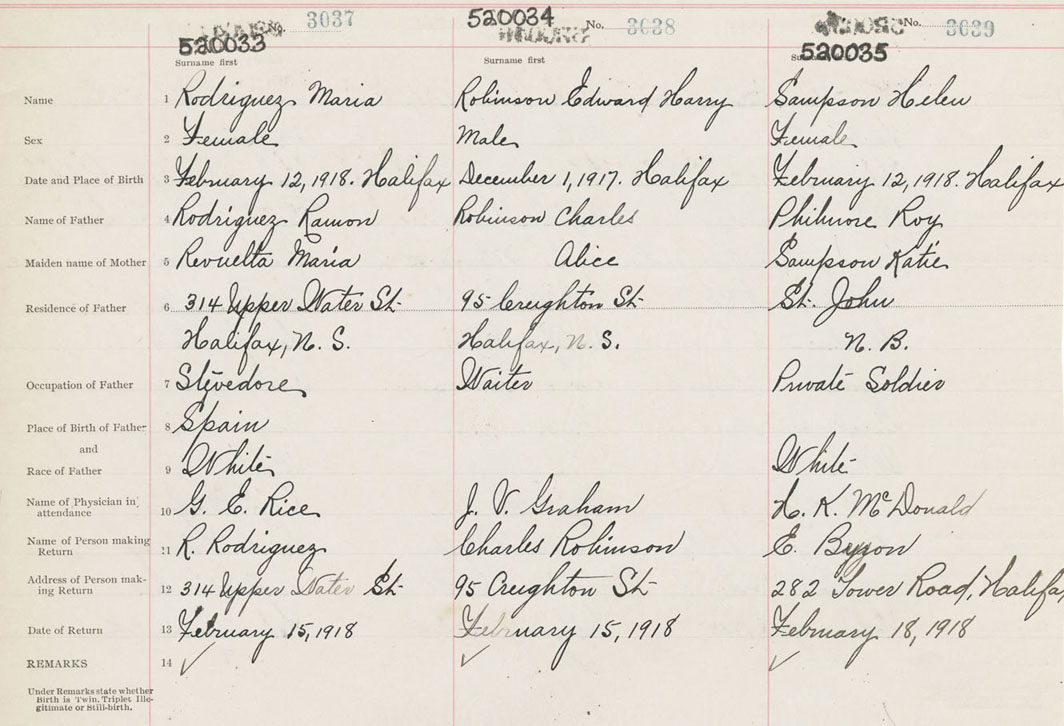 No. 3037 520034 No. 3038 No. 3039
520033 520035
Surname first Surname first
Name 1 Rodriguez Maria Robinson Edward Harry Sampson Helen
Sex 2 Female Male Female
Date and Place of Birth 3 February 12, 1918. Halifax December 1, 1917. Halifax February 12, 1918. Halifax
Name of Father 4 Rodriguez Ramon Robinson Charles Philmore Roy
Maiden name of Mother 5 Revuelta Maria Alice Sampson Katie
Residence of Father 6 314 Upper Water St. 95 Creighton St. St. John
Halifax, N. S. Halifax, N. S. N. B.
Occupation of Father 7 Stevedore Waiter Private Soldier
Place of Birth of Father 8 Spain
and
Race of Father 9 White White
Name of Physician in attendance 10 G. E. Rice J. V. Graham H. K. McDonald
Name of Person making Return 11 R. Rodriguez Charles Robinson E. Byron
Address of Person making Return 12 314 Upper Water St. 95 Creighton St. 282 Tower Road, Halifa
Date of Return 13 February 15, 1918 February 15, 1918 February 18, 1918
REMARKS 14 ✓ ✓ ✓
Under Remarks state whether
Birth is Twin. Triplet Ille-
gitimate or Still-birth.